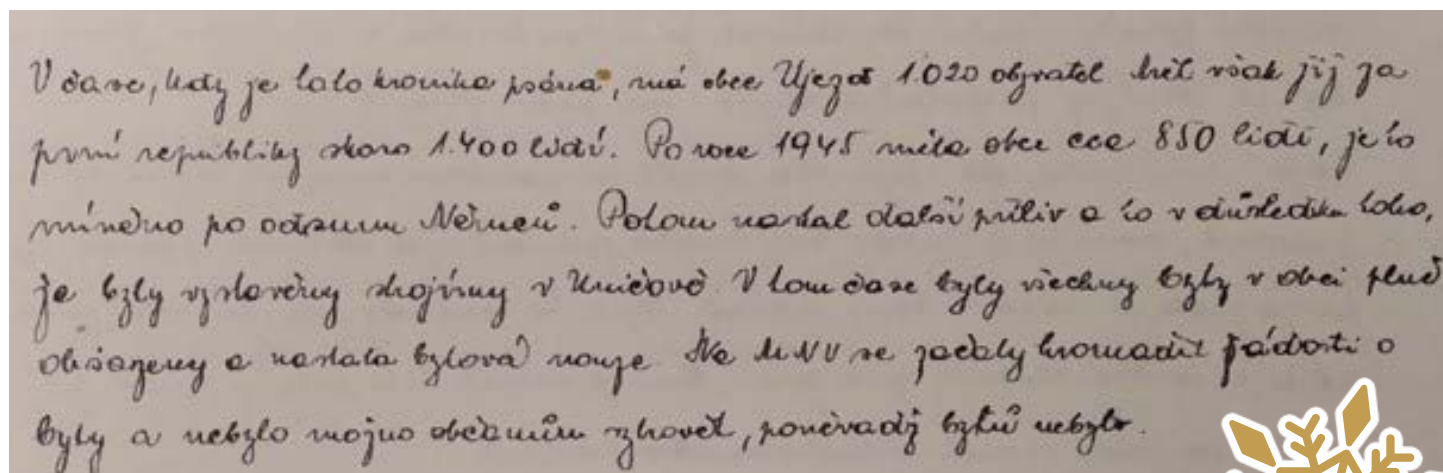 V čase, kdy je tato kronika psána, má obec Újezd 1.020 obyvatel měl však jij za
první republiky skoro 1.400 lidí. Po roce 1945 měla obec cca 850 lidí, je to
míněno po odsunu Němců. Potom nastal další příliv a to v důsledku toho,
že byly vystavěny strojírny v Uničově. V tom čase byly všechny byty v obci plně
obsazeny a nastala bytová nouze. Na MNV se začaly hromadit žádosti o
byty a nebylo možno občanům vyhovět, poněvadž bytů nebylo.